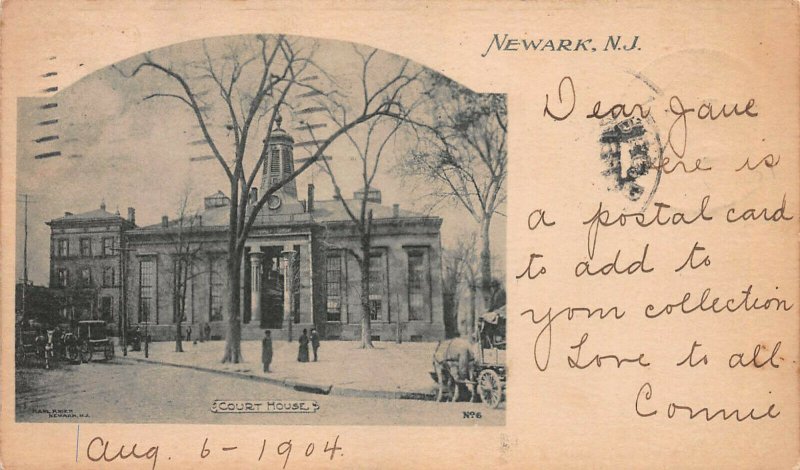 NEWARK, N.J.
Dear Jane
Here is
a postal card
to add to
your collection
Love to all.
Connie
COURT HOUSE
No 6
NEWARK, N.J.
Aug. 6 - 1904.